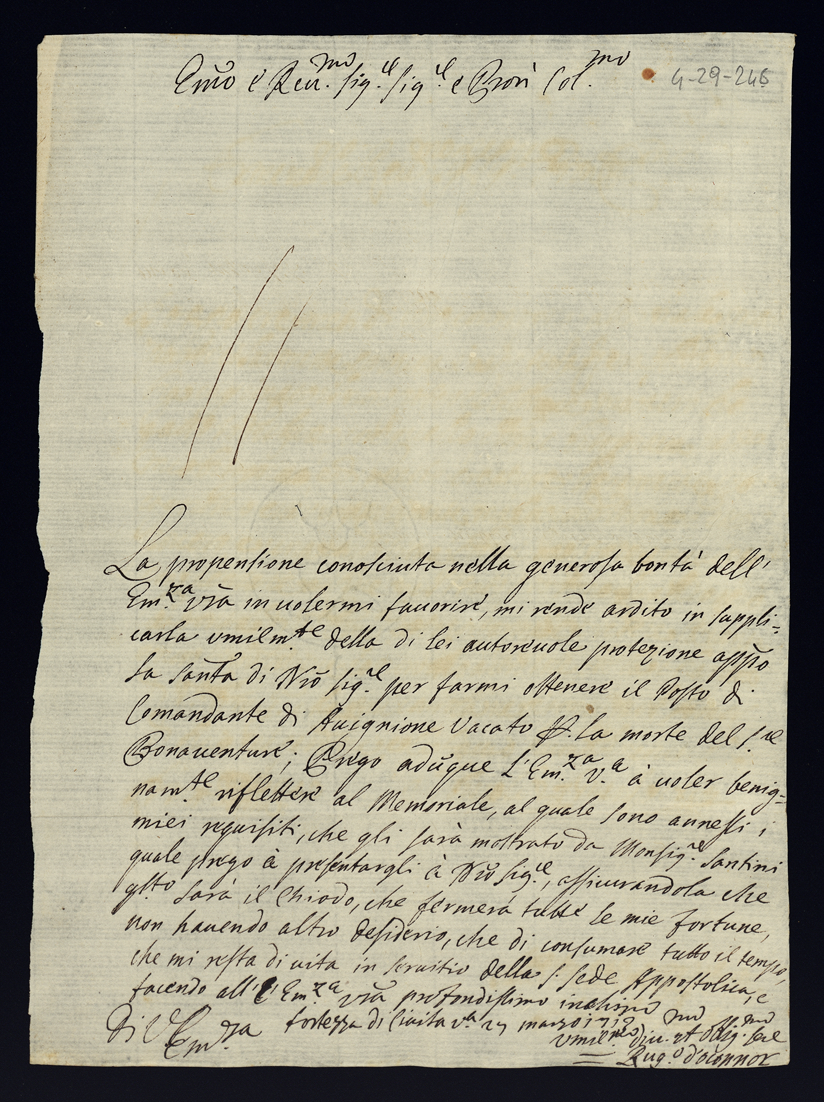 Emo è Reu.mo Sig.re Sig.re e Pron Col.mo
4-29-246
La propensione conosciuta nella generosa bontà dell'
Em.za vra in uolermi fauorire, mi rende ardito in suppli=
carla vmilm.te della di lei autoreuole protezione appo
la Santà di Nro Sig.re per farmi ottenere il Posto di
Comandante di Auignione Vacato per la morte del S.re
Bonauenture; Prego aduque l'Em.za v.a à uoler benig=
nam.te riflettere al Memoriale, al quale sono annessi i
miei requisiti, che gli sarà mostrato da Monsig.re Santini
quale prego à presentargli à Nro Sig.re, assicurandola che
q.sto sarà il Chiodo, che fermerà tutte le mie fortune,
non hauendo altro desiderio, che di consumare tutto il tempo,
che mi resta di uita in seruitio della S. Sede Appostolica, e
facendo all'Em.za vra profondissimo inchino
Di V. Em.za fortezza di Ciuita V.a 27 marzo
Vmil.mo Diu. et Obl.mo Ser.e
Rug.o d'oConnor